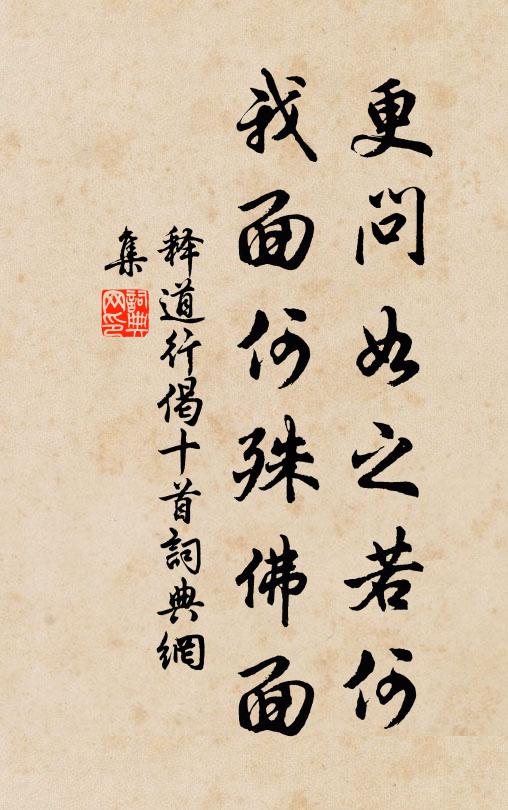 更问如之若何
我面何殊佛面
释道行偈十首詞典網
集
詞典
网印